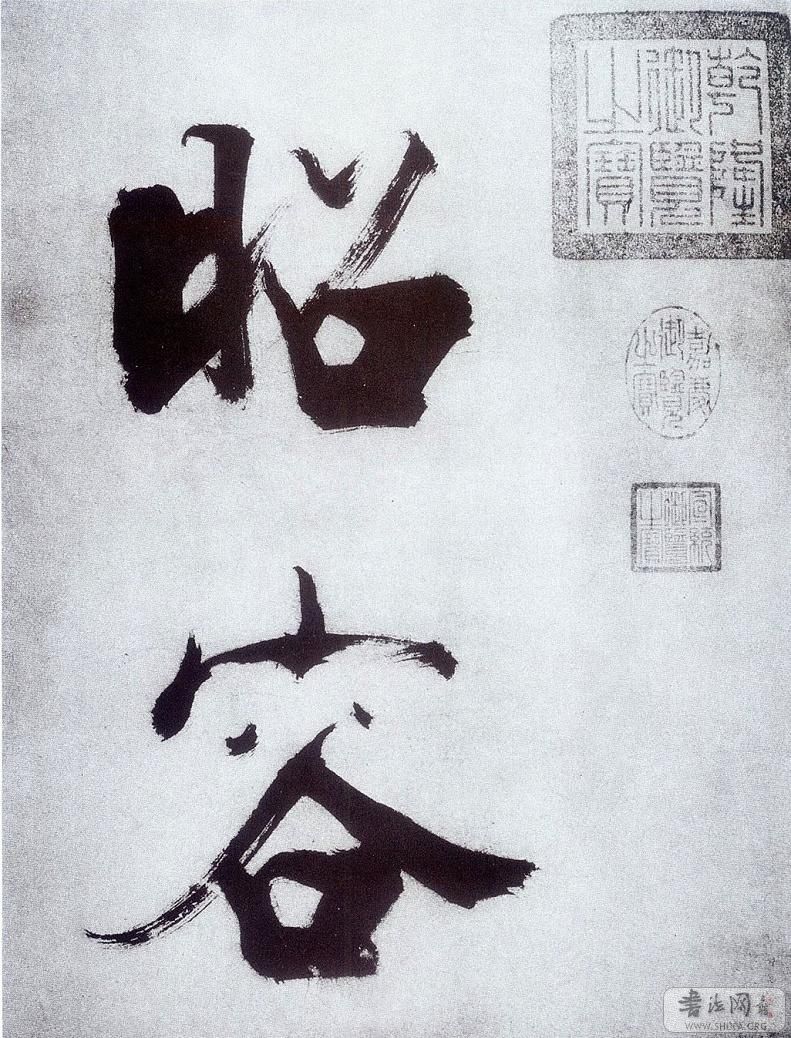 乾隆
御覽
之寶
嘉慶
御覽
之寶
宣統
御覽
之寶
昭容
書法网
WWW.SHUFA.ORG